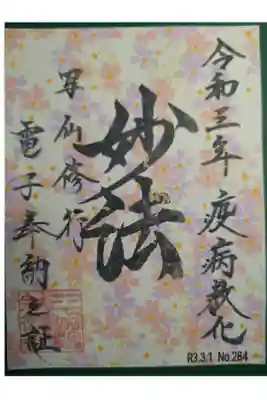 令和三年 疫病
妙法
写仏修行
電子奉納之証
R3.3.1 No.284